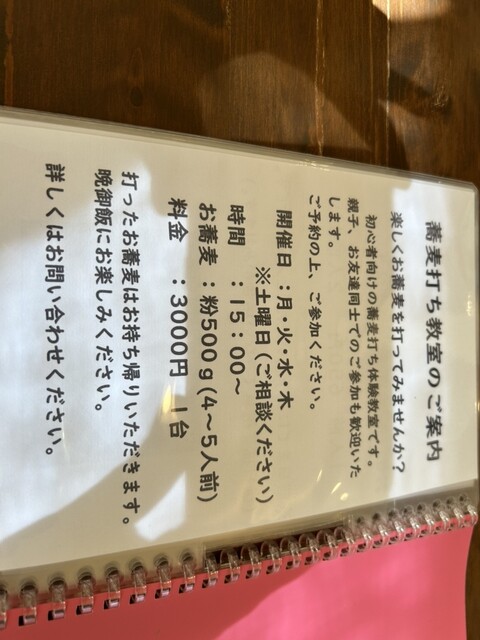 蕎麦打ち教室のご案内
楽しくお蕎麦を打ってみませんか？
初心者向けの蕎麦打ち体験教室です。
親子、お友達同士でのご参加も歓迎いた
します。
ご予約の上、ご参加ください。
開催日：月・火・水・木
※土曜日(ご相談ください)
時間　：１５：００～
お蕎麦：粉500ｇ(4～5人前)
料金　：3000円　一台
打ったお蕎麦はお持ち帰りいただきます。
晩御飯にお楽しみください。
詳しくはお問い合わせください。